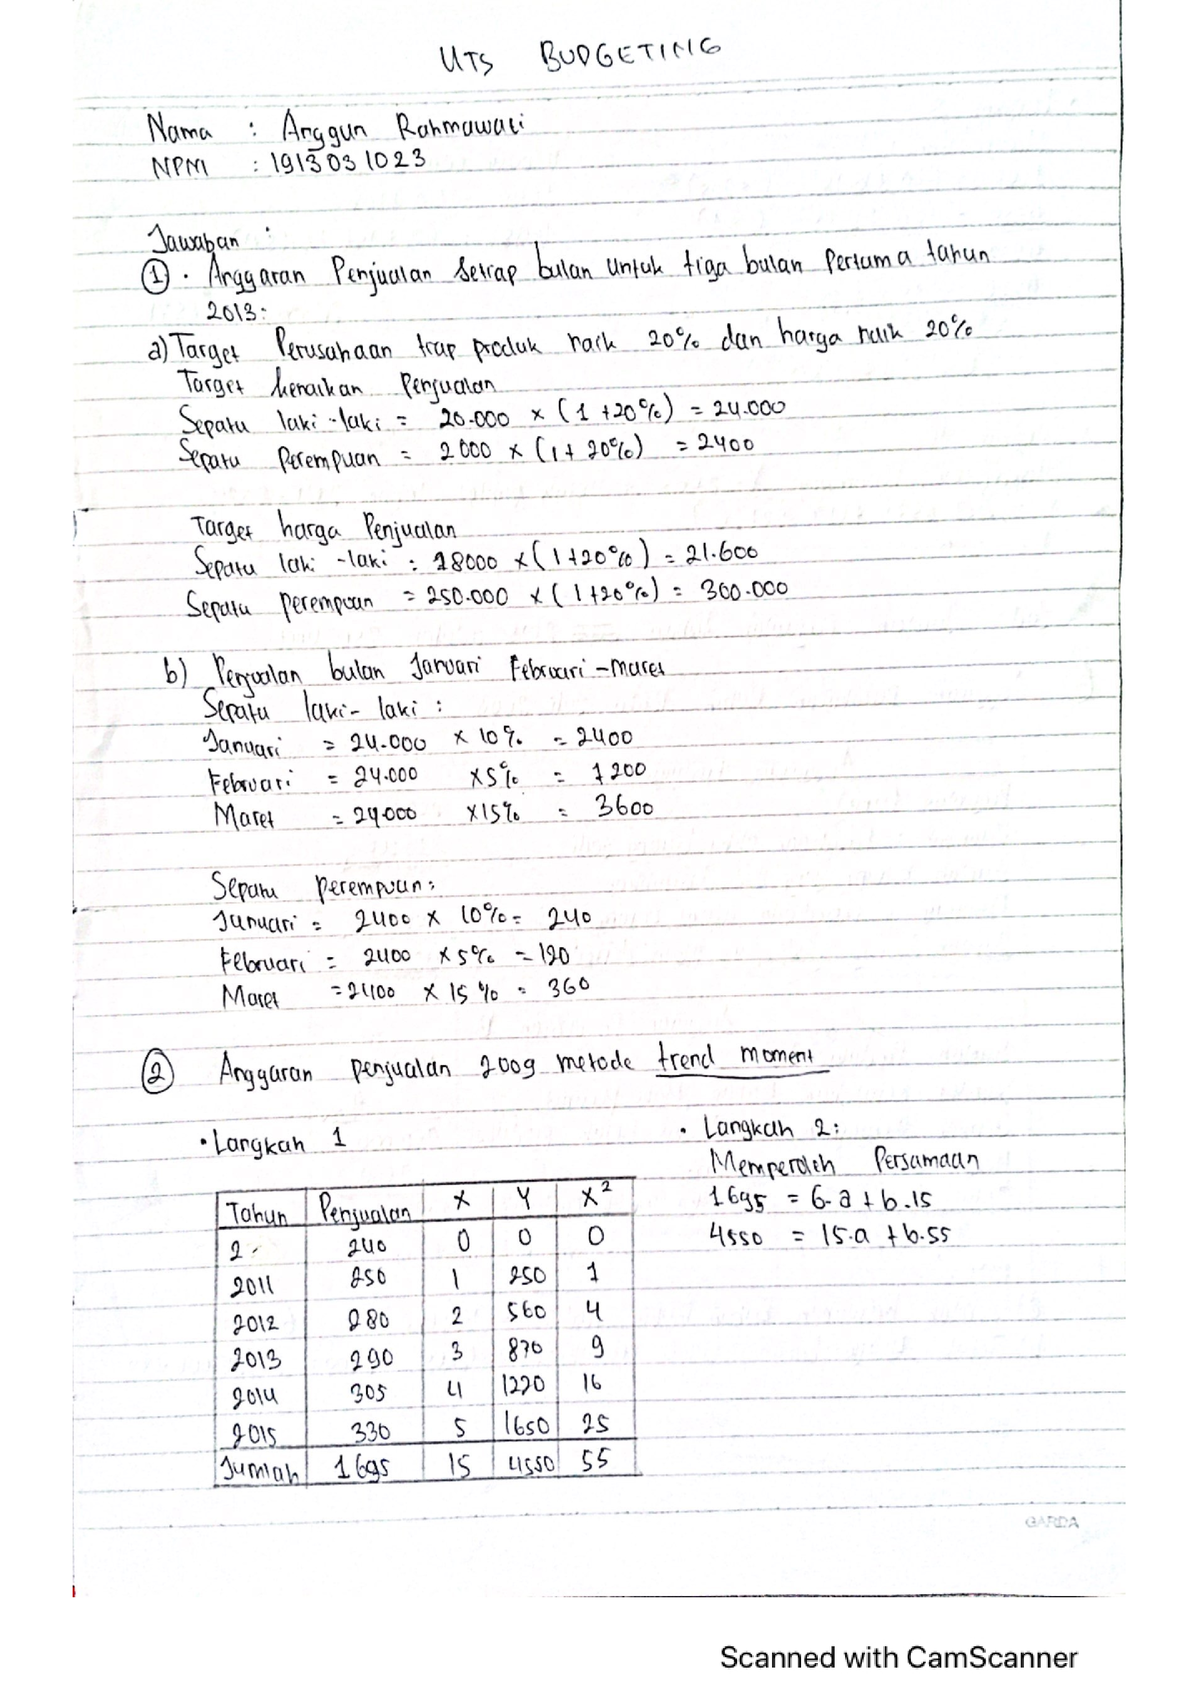 UTS BUDGETING
Nama : Anggun Rahmawati
NPM : 1913031023
Jawaban :
① . Anggaran Penjualan Setiap bulan untuk tiga bulan Pertama tahun
2013:
a) Target Perusahaan tiap produk naik 20% dan harga naik 20%
Target kenaikan Penjualan
Sepatu laki-laki = 20.000 × (1 +20%) = 24.000
Sepatu Perempuan = 2000 × (1+ 20%) = 2400
Target harga Penjualan
Sepatu laki-laki : 18000 × (1+20%) = 21.600
Sepatu perempuan = 250.000 × (1+20%) = 300.000
b) Penjualan bulan Januari Februari - maret
Sepatu laki-laki :
Januari = 24.000 × 10% = 2400
Februari = 24.000 ×5% = 1200
Maret = 24.000 ×15% = 3600
Sepatu perempuan:
Januari = 2400 × 10% = 240
Februari = 2400 ×5% = 120
Maret = 2400 × 15% = 360
② Anggaran penjualan 2009 metode trend moment
• Langkah 1
Tahun Penjualan X Y X²
2 240 0 0 0
2011 250 1 250 1
2012 280 2 560 4
2013 290 3 870 9
2014 305 4 1220 16
2015 330 5 1650 25
Jumlah 1695 15 4550 55
• Langkah 2:
Memperoleh Persamaan
1695 = 6.a + b.15
4550 = 15.a + b.55
GARDA
Scanned with CamScanner